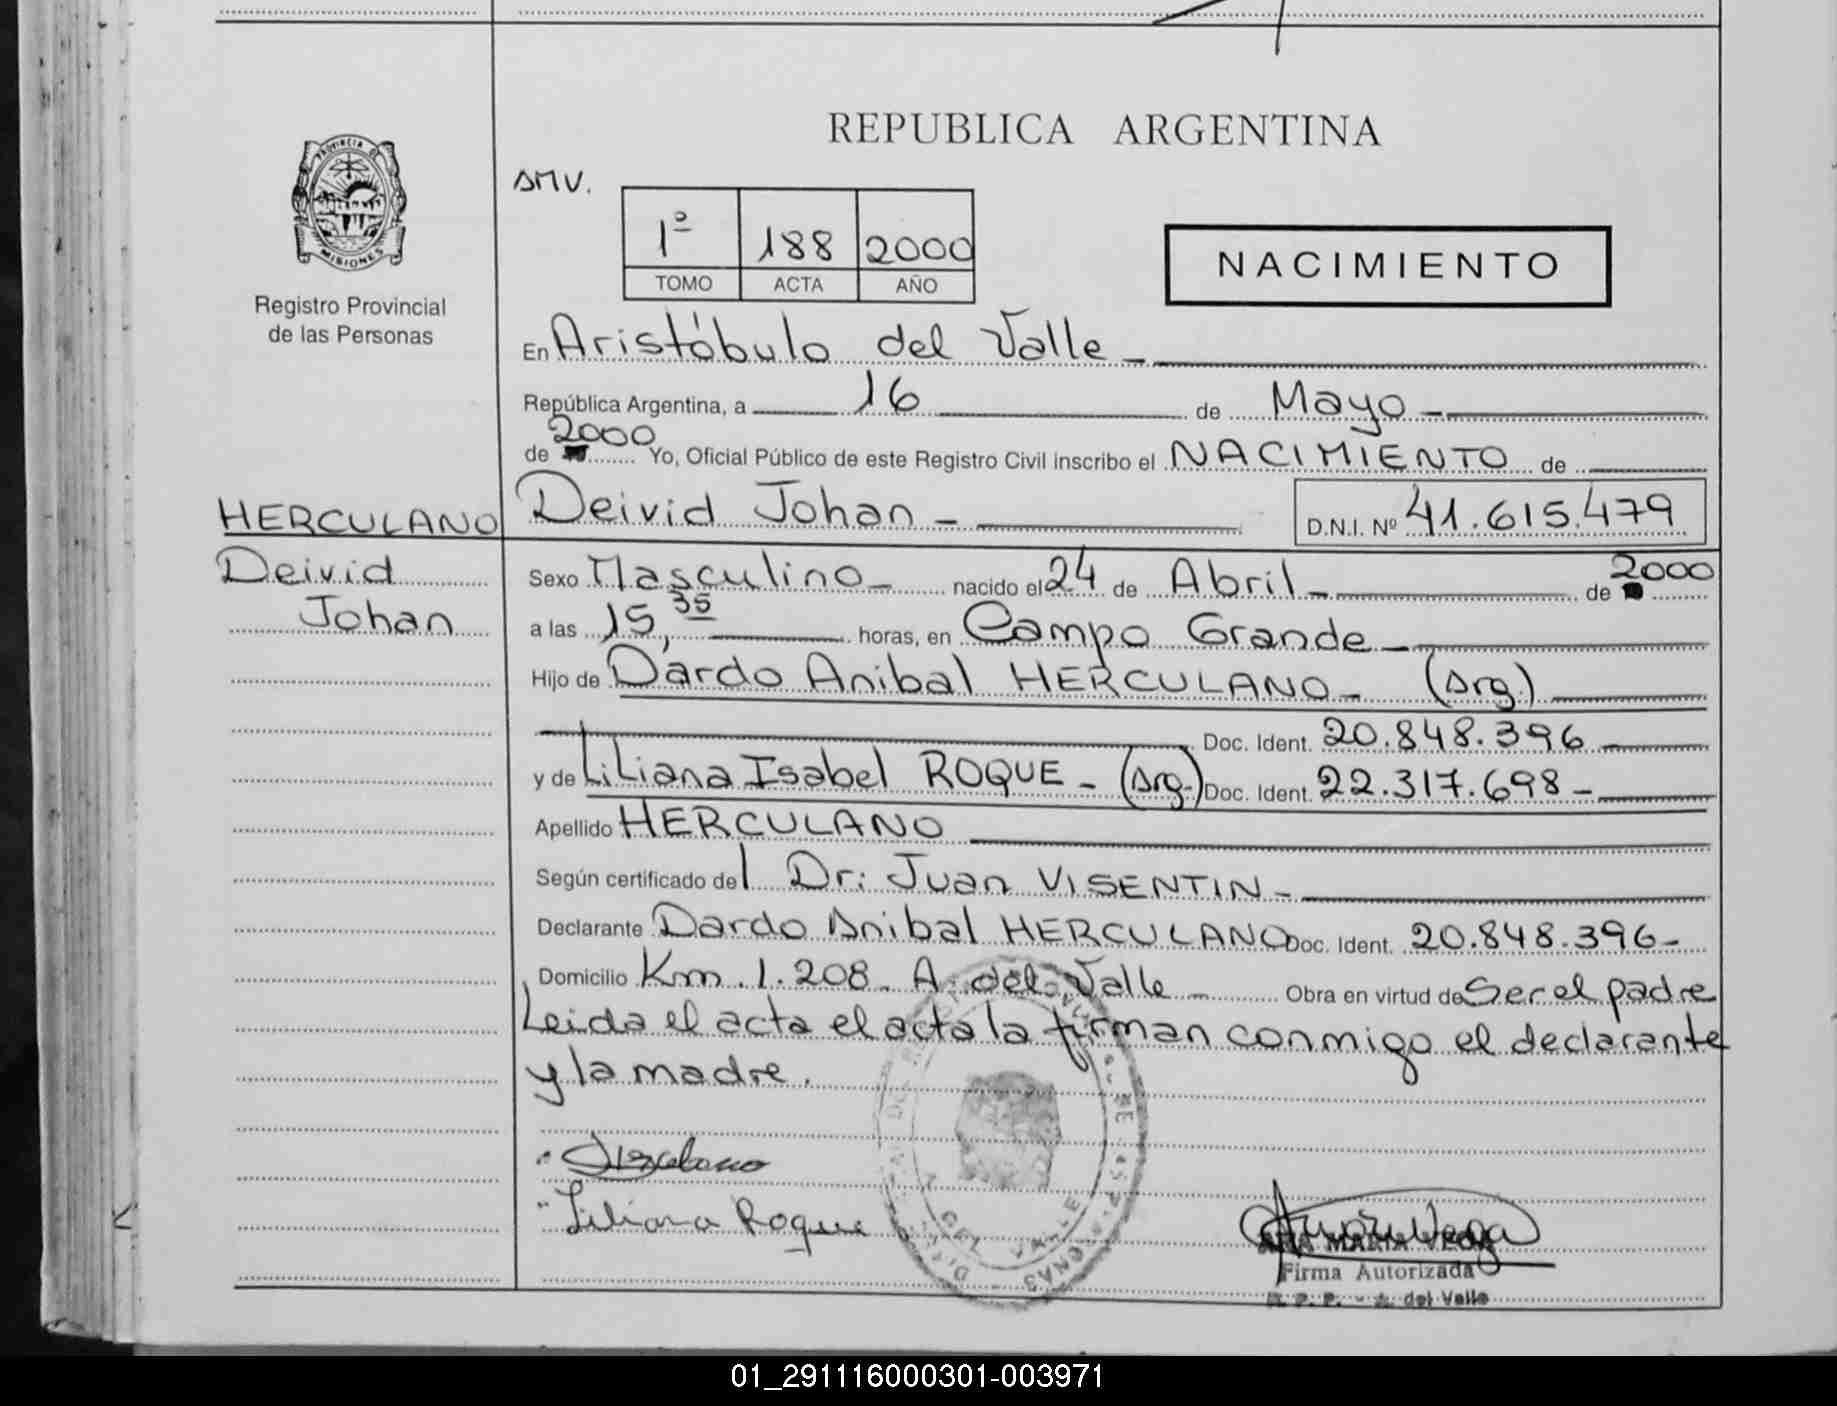 REPUBLICA ARGENTINA
PROVINCIA DE
MISIONES
Registro Provincial
de las Personas
AMV.
1º 188 2000
TOMO ACTA AÑO
NACIMIENTO
En Aristóbulo del Valle -
República Argentina, a 16 de Mayo -
de 2000 Yo, Oficial Público de este Registro Civil inscribo el NACIMIENTO de
HERCULANO
Deivid
Johan
Deivid Johan - D.N.I. Nº 41.615.479
Sexo Masculino - nacido el 24 de Abril - de 2000
a las 15,35 horas, en Campo Grande -
Hijo de Dardo Anibal HERCULANO - (Arg.)
Doc. Ident. 20.848.396 -
y de Liliana Isabel ROQUE - (Arg.) Doc. Ident. 22.317.698 -
Apellido HERCULANO
Según certificado del Dr: Juan VISENTIN -
Declarante Dardo Anibal HERCULANO Doc. Ident. 20.848.396 -
Domicilio Km. 1.208. A. del Valle - Obra en virtud de Ser el padre
Leida el acta el acta la firman conmigo el declarante
y la madre.
Herculano
Liliana Roque
DEL VALLE
ANA MARIA VEGA
Firma Autorizada
R. P. P. - A. del Valle
01_291116000301-003971